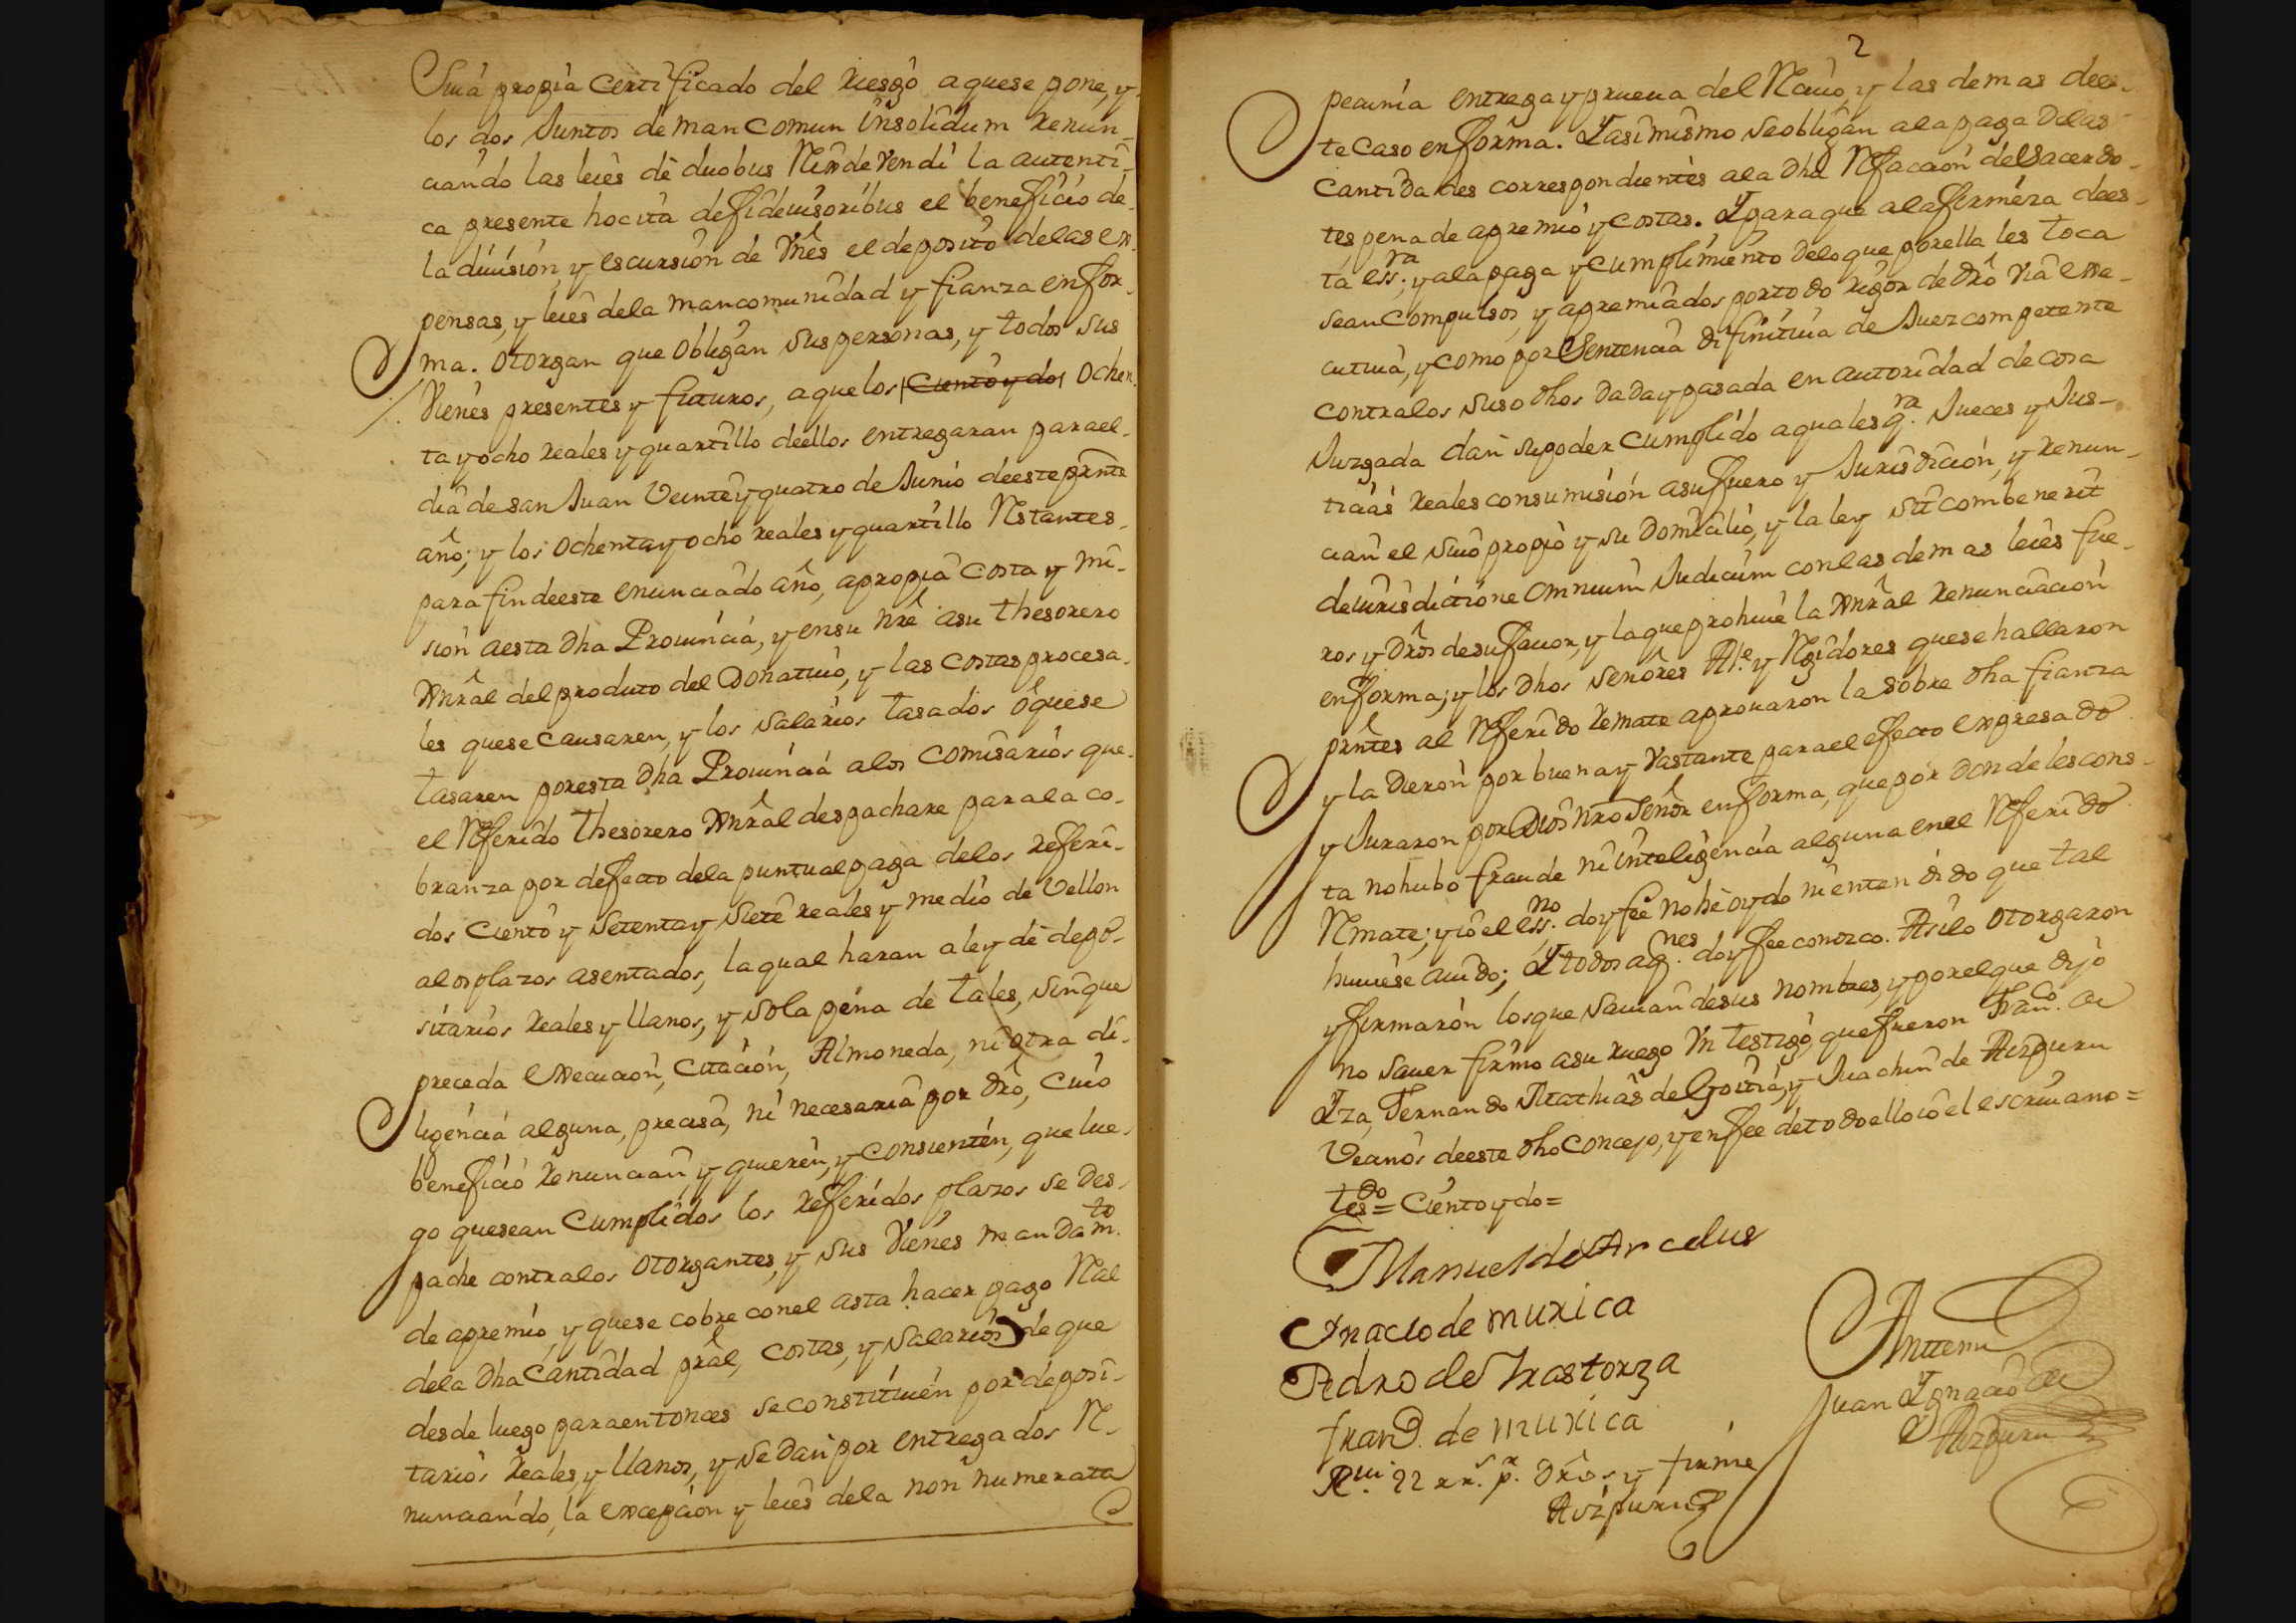 Suia propia certificado del riesgo a quese pone, y
los dos Juntos de man comun insolidum renun-
ciando las leies de duobus Rex de vendi la autenti-
ca presente hocita de fideiusoribus el beneficio de
la diuision, y escursion de Vnes el deposito delas ex-
pensas, y leies dela mancomunidad y fianza en for-
ma. Otorgan que obligan sus personas, y todos sus
Vienes presentes y futuros, aque los ciento y do ochen-
ta y ocho reales y quartillo deellos entregaran parael
dia de san Juan Veinte y quatro de Junio deeste prnte
año; y los ochenta y ocho reales y quartillo Rstantes
para fin deeste enunciado año, apropia costa y mi-
sion aesta dha Prouincia, y en su nre asu thesorero
Xnral del produto del Donatiuo, y las costas procesa-
les quese causaren, y los salarios tasados o quese
tasaren poresta dha Prouincia alos comisarios que
el Rferido thesorero Xnral despachare parala co-
branza por defecto dela puntual paga delos referi-
dos ciento y setenta y siete reales y medio de Vellon
alos plazos asentados, laqual haran a ley de depo-
sitarios reales y llanos, y sola pena de tales, sin que
preceda execucion, citacion, Almoneda, ni otra di-
ligencia alguna, precisa, ni necesaria por dro, cuio
beneficio renuncian y quieren, y consienten, que lue-
go quesean cumplidos los referidos plazos se des-
pache contralos otorgantes, y sus Vienes mandam.to
de apremio, y quese cobre conel asta hacer pago Ral
dela dha cantidad pral, costas, y salarios de que
desde luego paraentonces se constituien por deposi-
tarios reales, y llanos, y se dan por entregados R-
nunciando, la excepcion y leies dela non numerata
2
pecunia entrega y prueua del Rciuo, y las demas dees-
te caso en forma. Y asimismo se obligan ala paga delas
cantidades correspondientes ala dha Rfaccion del sacerdo-
tes, pena de apremio y costas. Y para que ala firmeza dees-
ta ess.ra y ala paga y cumplimiento delo que porella les toca
sean compulsos, y apremiados por todo rigor de dro via exe-
cutiua, y como por Sentencia difinitiua de Juez competente
contralos suso dhos dada y pasada en autoridad de cosa
Juzgada dan su poder cumplido a quales q.ra Jueces y Jus-
ticias reales con sumision asu fuero y Jurisdicion, y renun-
cian el suio propio y su Domicilio, y la ley sit combenerit
de iurisdictione omnium Judicum con las demas leies fue-
ros y dros de su fauor, y la que prohiue la Xnral renunciacion
en forma; y los dhos señores Al.e y Rgidores quese hallaron
prntes al Rferido remate aprouaron la sobre dha fianza
y la dieron por buena y vastante parael efecto expresado
y Juraron por Dios nro Señor en forma, que por donde les cons-
ta no hubo fraude ni inteligencia alguna enel Rferido
Rmate; y io el ess.no doy fee no he oydo ni entendido que tal
huuiese auido; Y todos aq.nes doy fee conozco. Asi lo otorgaron
y firmaron los que sauian de sus nombres, y por el que dijo
no sauer firmo asu ruego Vn testigo, que fueron Fran.co de
Yza, Fernando Mathias de Goitia, y Juachin de Aizpuru
Vecinos deeste dho Concejo, y en fee de todo ello io el escriuano=
tes.do= Ciento y do=
Manuel de Arcelus
Ynacio de muxica
Pedro de Yrastorza
fran.co de muxica
R.ui 22 rr.s p.r dros y firme
Aizpuru
Anttemi
Juan Ygnacio de
Aizpuru